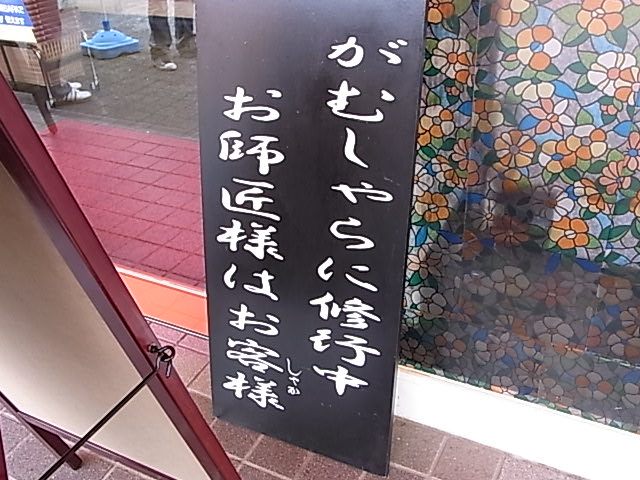 がむしゃらに修行中
お師匠様はお客様
しゃか